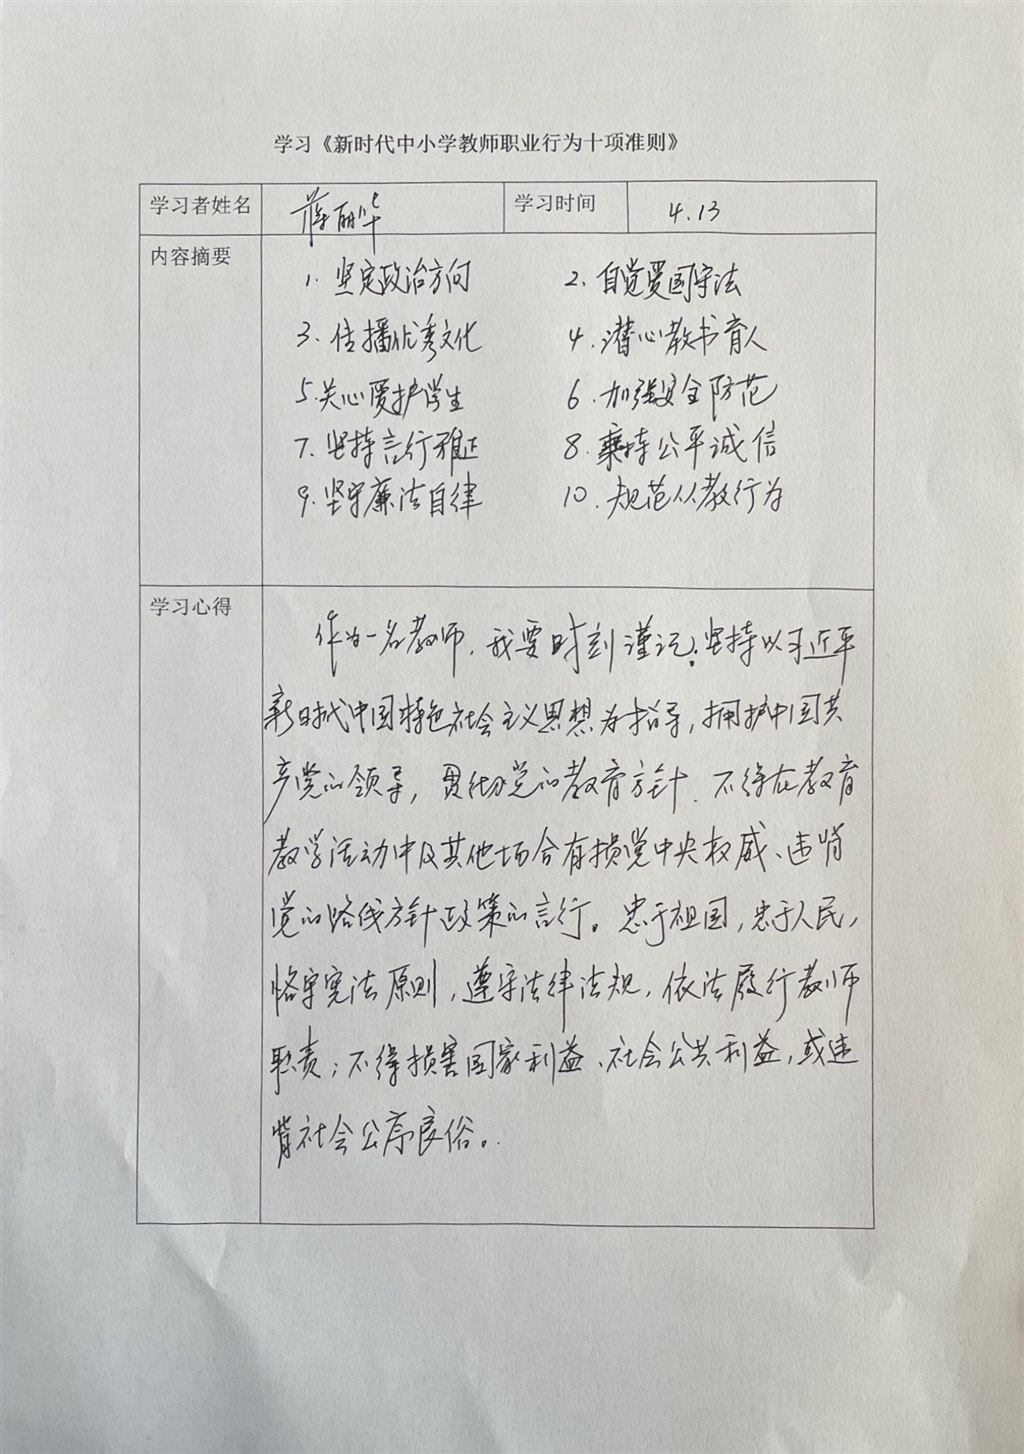 学习《新时代中小学教师职业行为十项准则》
学习者姓名 蒋丽华 学习时间 4.13
内容摘要
1. 坚定政治方向 2. 自觉爱国守法
3. 传播优秀文化 4. 潜心教书育人
5. 关心爱护学生 6. 加强安全防范
7. 坚持言行雅正 8. 秉持公平诚信
9. 坚守廉洁自律 10. 规范从教行为
学习心得
作为一名教师，我要时刻谨记：坚持以习近平
新时代中国特色社会主义思想为指导，拥护中国共
产党的领导，贯彻党的教育方针．不得在教育
教学活动中及其他场合有损党中央权威、违背
党的路线方针政策的言行。忠于祖国，忠于人民，
恪守宪法原则，遵守法律法规，依法履行教师
职责；不得损害国家利益、社会公共利益，或违
背社会公序良俗。